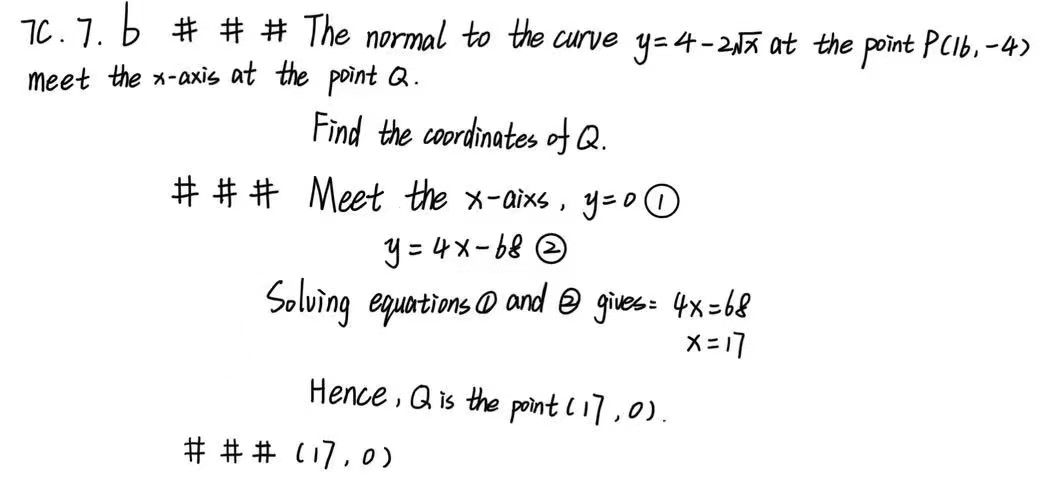 7C. 7. b # # # The normal to the curve y=4-2√x at the point P(16,-4)
meet the x-axis at the point Q.
Find the coordinates of Q.
# # # Meet the x-aixs, y=0 ①
y=4x-68 ②
Solving equations ① and ② gives= 4x=68
x=17
Hence, Q is the point (17,0).
# # # (17,0)